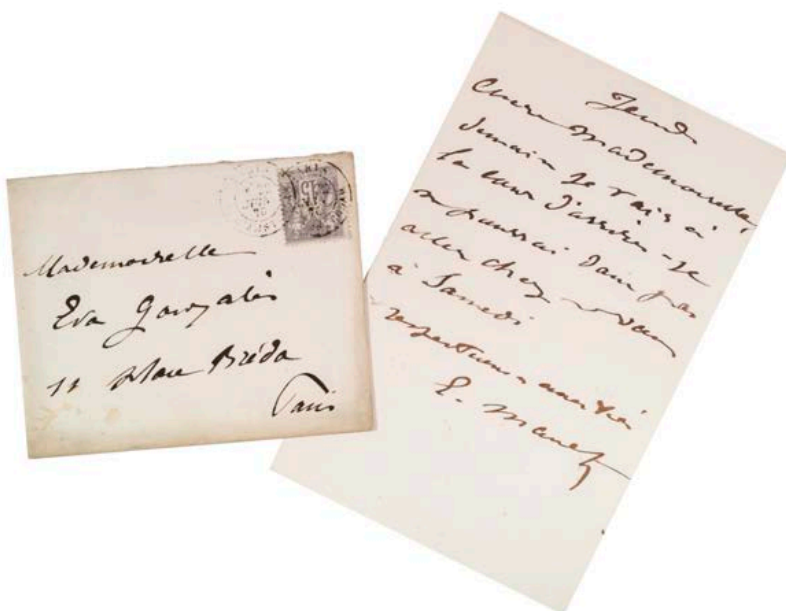 Mademoiselle
Eva Gonzalès
11 place Bréda
Paris
15
Jeudi
Chère Mademoiselle,
demain je vais à
la cour d'assises - je
ne pourrai donc pas
aller chez vous
à Samedi
E. Manet